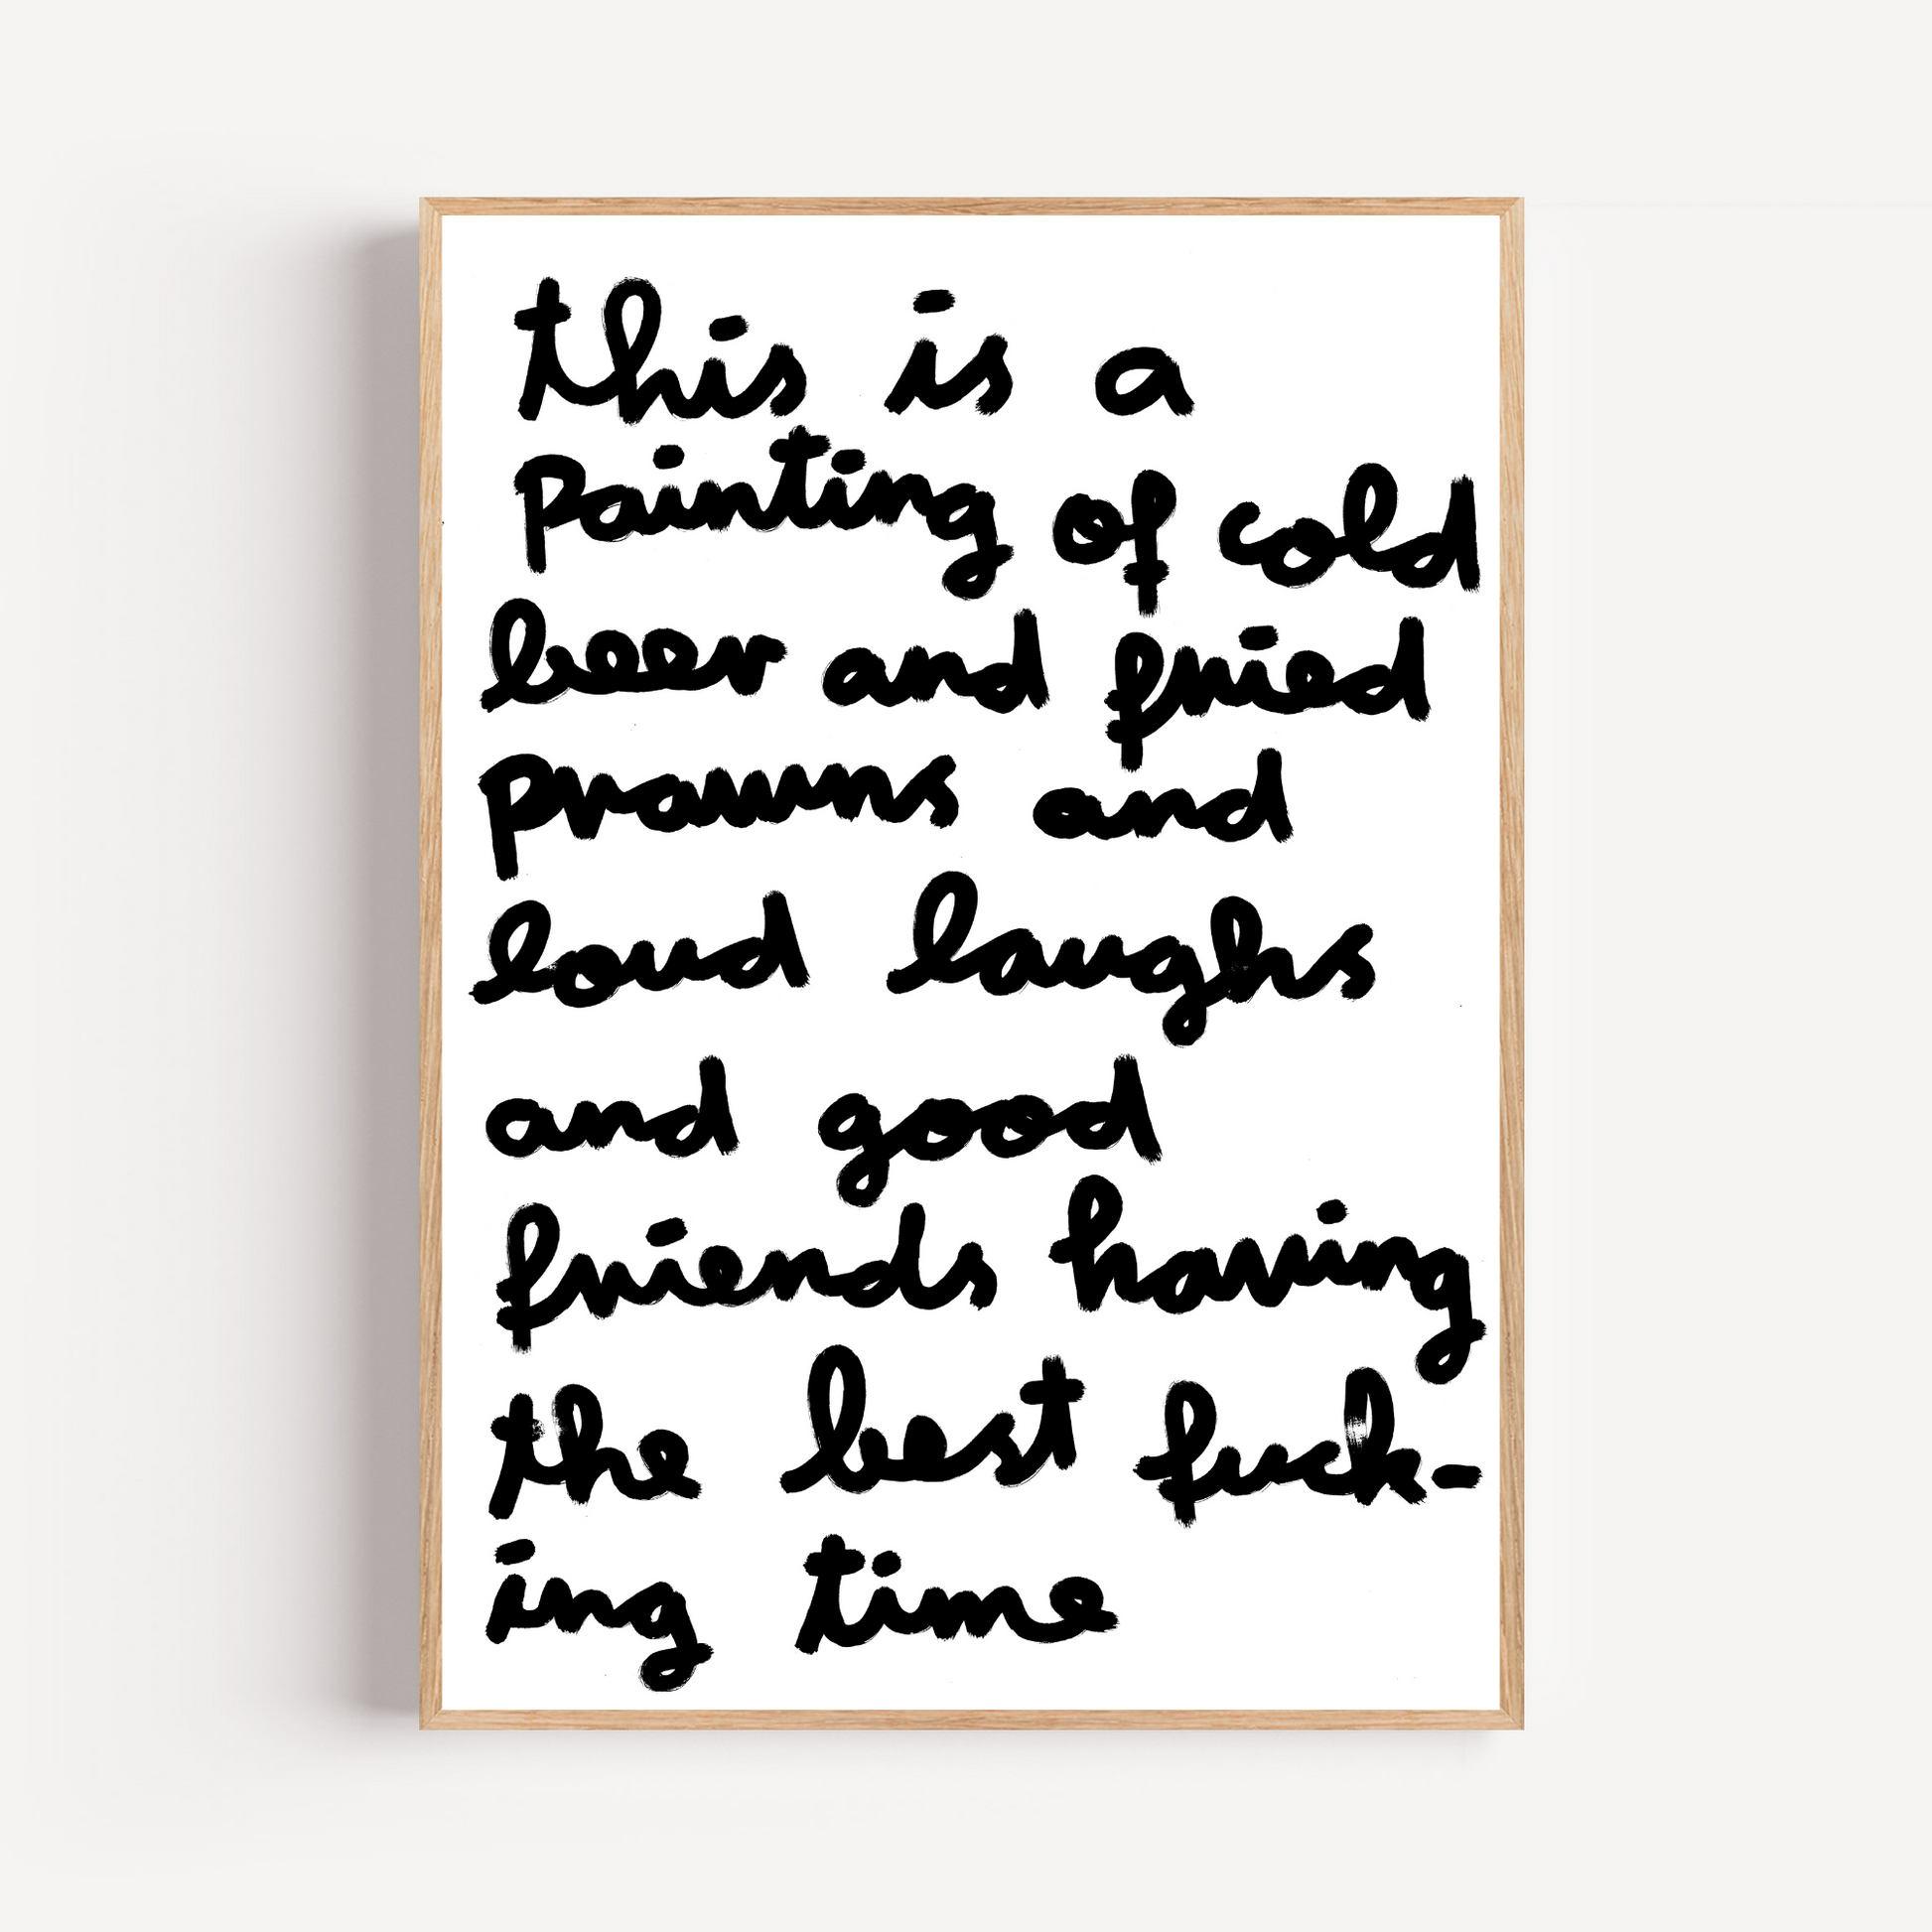 this is a
painting of cold
beer and fried
prawns and
loud laughs
and good
friends having
the best fuck-
ing time